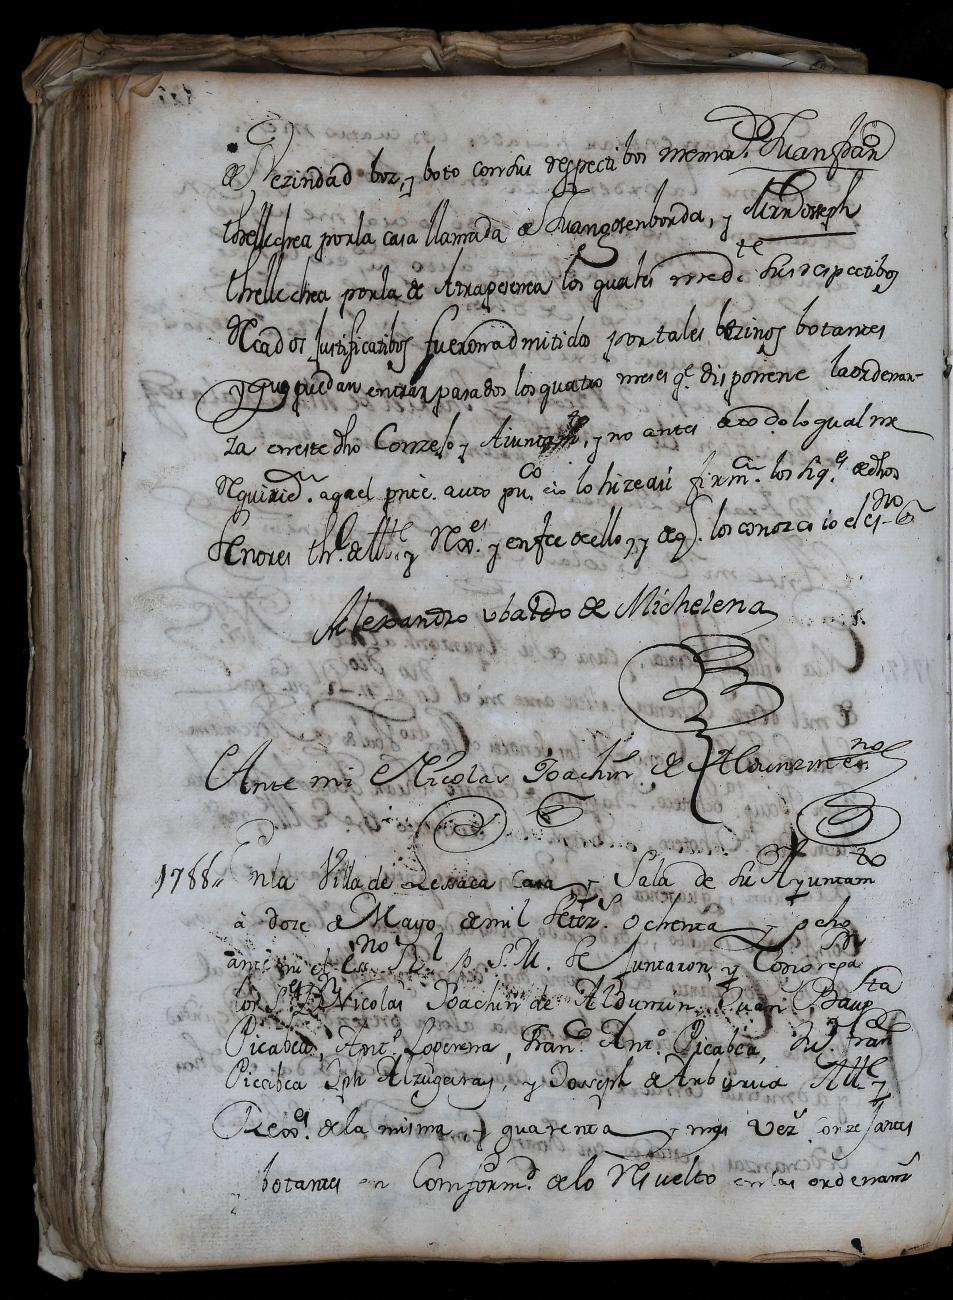 de Vezindad boz, y boto con sus respectibos memor.s Juan fran.co
thellechea por la casa llamada de Juangorenborda, y Mrn Joseph
thellechea por la de Atrapeserea los quales med.te sus respectibos
Recados Justificatibos fueron admitidos por tales bezinos botantes
y que puedan entrar pasados los quatro meses q.e dispone la ordenan-
za en este dho Conzejo, y Aiuntam.to, y no antes de todo lo qual me
Requirier.n agael prste. auto pu.co eio lo hize asi firm.n los sig.es de dhos
Señores thr.e de Alc.te y Rex.es y en fee de ello, y de q.e los conozco io el es.no
Alexandro Ubaldo de Michelena
Ante mi Nicolas Joachin de Aldunzin es.no
1788,, En la Villa de Lessaca Casa y Sala de su Ayuntam.to
à doze de Mayo de mil setez.s ochenta y ocho
ante mi el Es.no R.l p. S.M. se Juntaron, y Congrega.n
los S.es Nicolas Joachin de Aldunzin Juan Baup.sta
Picabea, Ant.o Loperena, Fran.co Ant.o Picabea, Ju.n Fran.co
Picabea Jph Alzugaray y Joseph de Arburua Alc.e y
Rex.es de la misma, y quarenta y mas vez.s conzejantes
botantes en Comform.d de lo Resuelto en las ordenanz.s